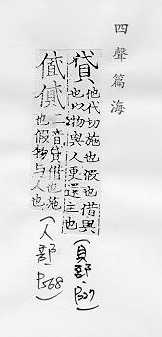 四聲篇海
貸
他代切施也假也借與
也以物與人更還主也
(貝部.P527)
二音貸借也施
也假物与人也
(人部.P568)